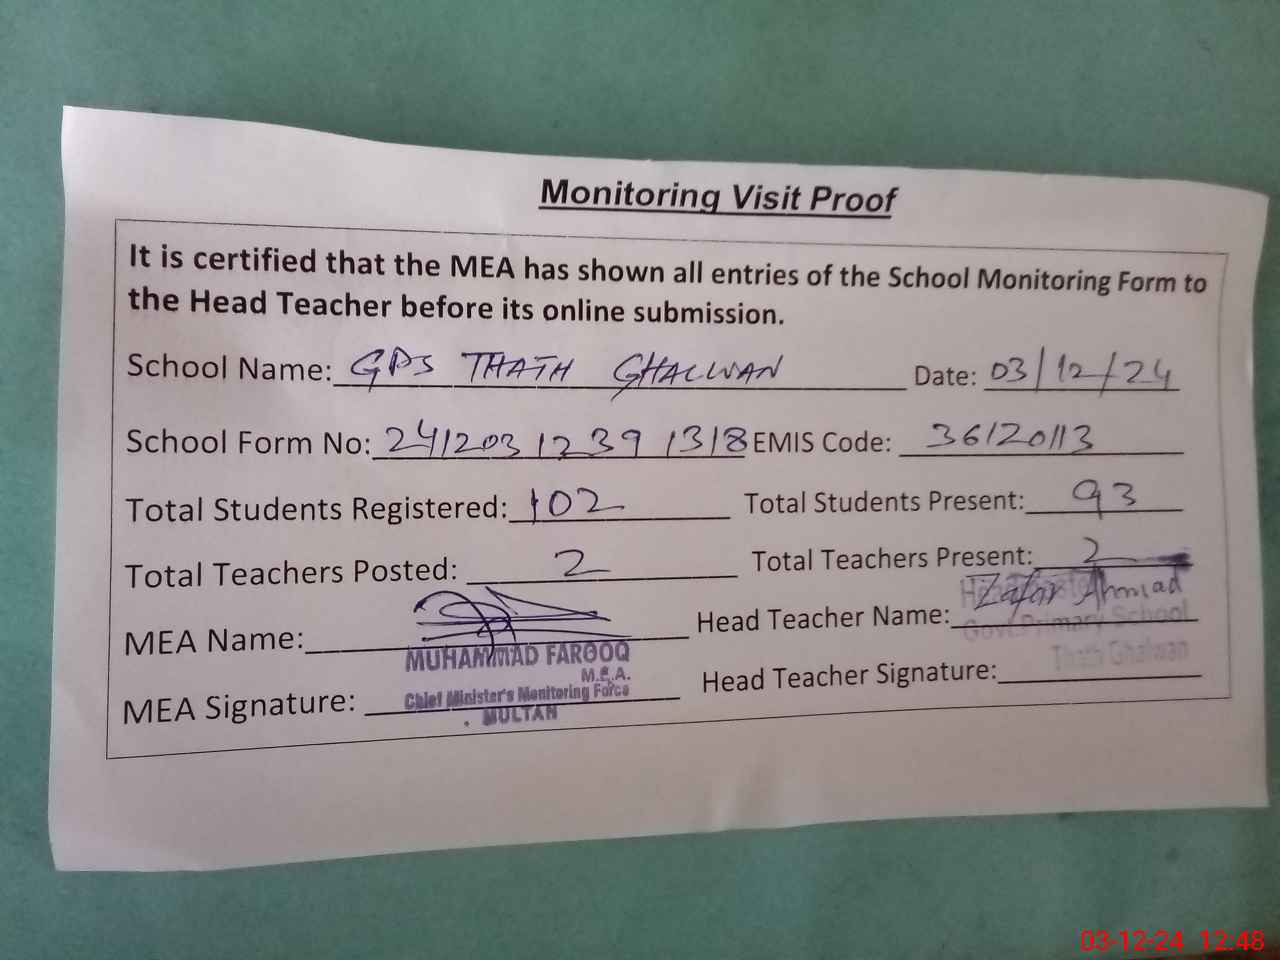 Monitoring Visit Proof
It is certified that the MEA has shown all entries of the School Monitoring Form to
the Head Teacher before its online submission.
School Name: GPS THATH GHALWAN Date: 03/12/24
School Form No: 241203 1239 1318 EMIS Code: 36120113
Total Students Registered: 102 Total Students Present: 93
Total Teachers Posted: 2 Total Teachers Present: 2
MEA Name: Head Teacher Name: Zafar Ahmad
Govt. Primary School
Thath Ghalwan
MUHAMMAD FAROOQ
M.E.A.
MEA Signature: Head Teacher Signature:
Chief Minister's Monitoring Force
MULTAN
03-12-24 12:48